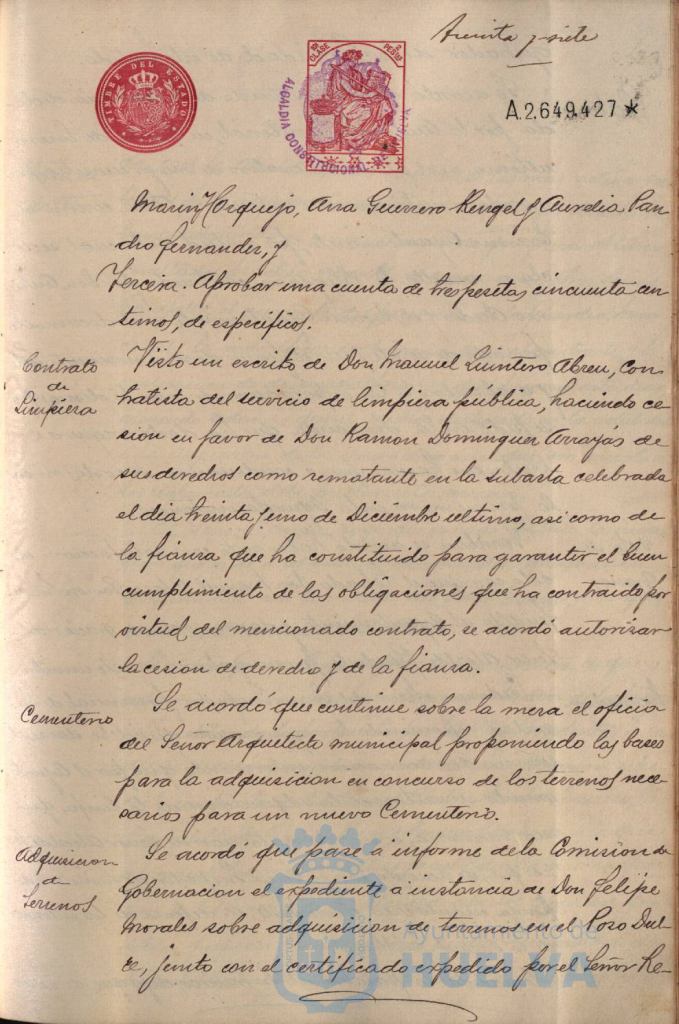 Treinta y siete
TIMBRE DEL ESTADO
10ª CLASE 2 PESETAS
ALCALDIA CONSTITUCIONAL HUELVA
A.2.649.427*
Marin Horquejo, Ana Guerrero Rengel y Aurelia Pan-
dro Fernandez, y
Tercera. Aprobar una cuenta de tres pesetas cincuenta cen-
timos, de especificos.
Contrato
de
Limpieza
Visto un escrito de Don Manuel Quintero Abreu, con-
tratista del servicio de limpieza pública, haciendo ce-
sion en favor de Don Ramon Dominguez Arrayás de
sus derechos como rematante en la subasta celebrada
el dia treinta y uno de Diciembre ultimo, asi como de
la fianza que ha constituido para garantir el buen
cumplimiento de las obligaciones que ha contraido por
virtud del mencionado contrato, se acordó autorizar
la cesion de derecho y de la fianza.
Cementerio
Se acordó que continue sobre la mesa el oficio
del Señor Arquitecto municipal proponiendo las bases
para la adquisicion en concurso de los terrenos nece-
sarios para un nuevo Cementerio.
Adquisicion
de
Terrenos
Se acordó que pase á informe de la Comision de
Gobernacion el expediente á instancia de Don Felipe
Morales sobre adquisicion de terrenos en el Pozo Dul-
ce, junto con el certificado expedido por el Señor Re-
Ayuntamiento de
HUELVA